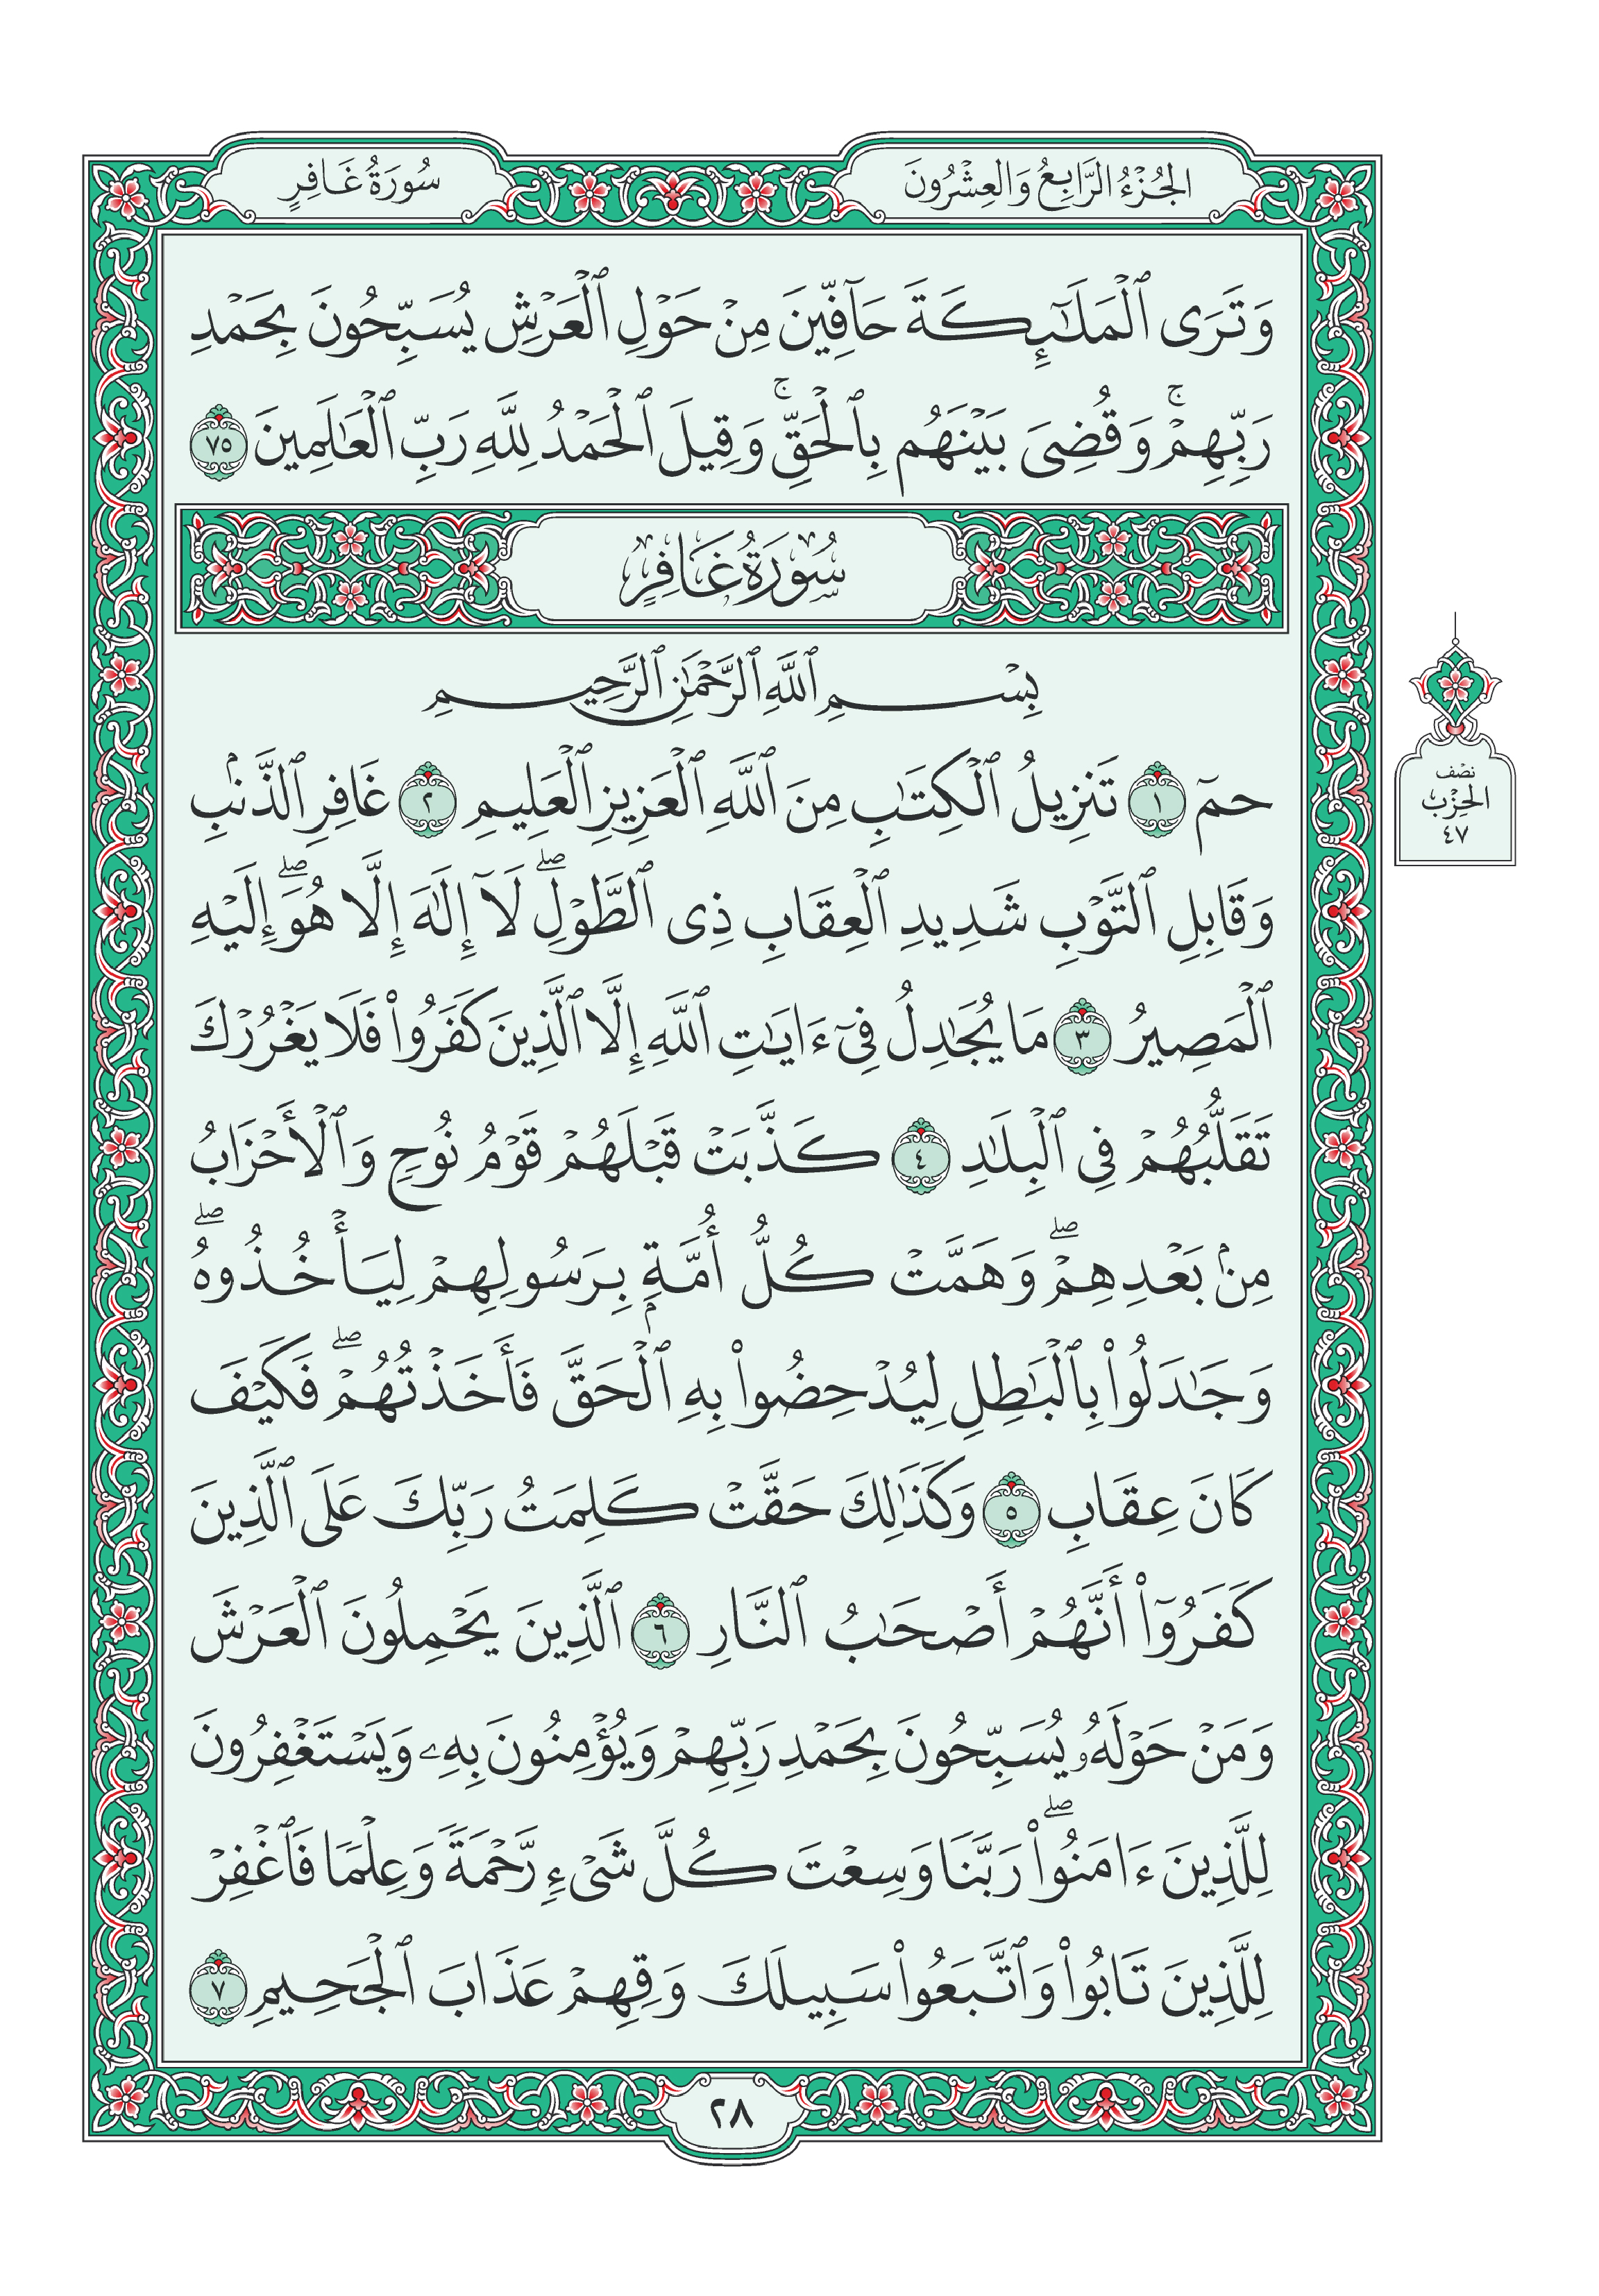 الجُزْءُ الرَّابِعُ وَالعِشْرُونَ
سُورَةُ غَافِرٍ
وَتَرَى ٱلْمَلَـٰٓئِكَةَ حَآفِّينَ مِنْ حَوْلِ ٱلْعَرْشِ يُسَبِّحُونَ بِحَمْدِ
رَبِّهِمْۚ وَقُضِىَ بَيْنَهُم بِٱلْحَقِّۚ وَقِيلَ ٱلْحَمْدُ لِلَّهِ رَبِّ ٱلْعَـٰلَمِينَ ٧٥
سُورَةُ غَافِرٍ
بِسْمِ ٱللَّهِ ٱلرَّحْمَـٰنِ ٱلرَّحِيمِ
حمٓ ١ تَنزِيلُ ٱلْكِتَـٰبِ مِنَ ٱللَّهِ ٱلْعَزِيزِ ٱلْعَلِيمِ ٢ غَافِرِ ٱلذَّنۢبِ
وَقَابِلِ ٱلتَّوْبِ شَدِيدِ ٱلْعِقَابِ ذِى ٱلطَّوْلِۖ لَآ إِلَـٰهَ إِلَّا هُوَۖ إِلَيْهِ
ٱلْمَصِيرُ ٣ مَا يُجَـٰدِلُ فِىٓ ءَايَـٰتِ ٱللَّهِ إِلَّا ٱلَّذِينَ كَفَرُوا۟ فَلَا يَغْرُرْكَ
تَقَلُّبُهُمْ فِى ٱلْبِلَـٰدِ ٤ كَذَّبَتْ قَبْلَهُمْ قَوْمُ نُوحٍ وَٱلْأَحْزَابُ
مِنۢ بَعْدِهِمْۖ وَهَمَّتْ كُلُّ أُمَّةٍۭ بِرَسُولِهِمْ لِيَأْخُذُوهُۖ
وَجَـٰدَلُوا۟ بِٱلْبَـٰطِلِ لِيُدْحِضُوا۟ بِهِ ٱلْحَقَّ فَأَخَذْتُهُمْۖ فَكَيْفَ
كَانَ عِقَابِ ٥ وَكَذَٰلِكَ حَقَّتْ كَلِمَتُ رَبِّكَ عَلَى ٱلَّذِينَ
كَفَرُوٓا۟ أَنَّهُمْ أَصْحَـٰبُ ٱلنَّارِ ٦ ٱلَّذِينَ يَحْمِلُونَ ٱلْعَرْشَ
وَمَنْ حَوْلَهُۥ يُسَبِّحُونَ بِحَمْدِ رَبِّهِمْ وَيُؤْمِنُونَ بِهِۦ وَيَسْتَغْفِرُونَ
لِلَّذِينَ ءَامَنُوا۟ۖ رَبَّنَا وَسِعْتَ كُلَّ شَىْءٍ رَّحْمَةً وَعِلْمًا فَٱغْفِرْ
لِلَّذِينَ تَابُوا۟ وَٱتَّبَعُوا۟ سَبِيلَكَ وَقِهِمْ عَذَابَ ٱلْجَحِيمِ ٧
نصف
الحِزْب
٤٧
٢٨